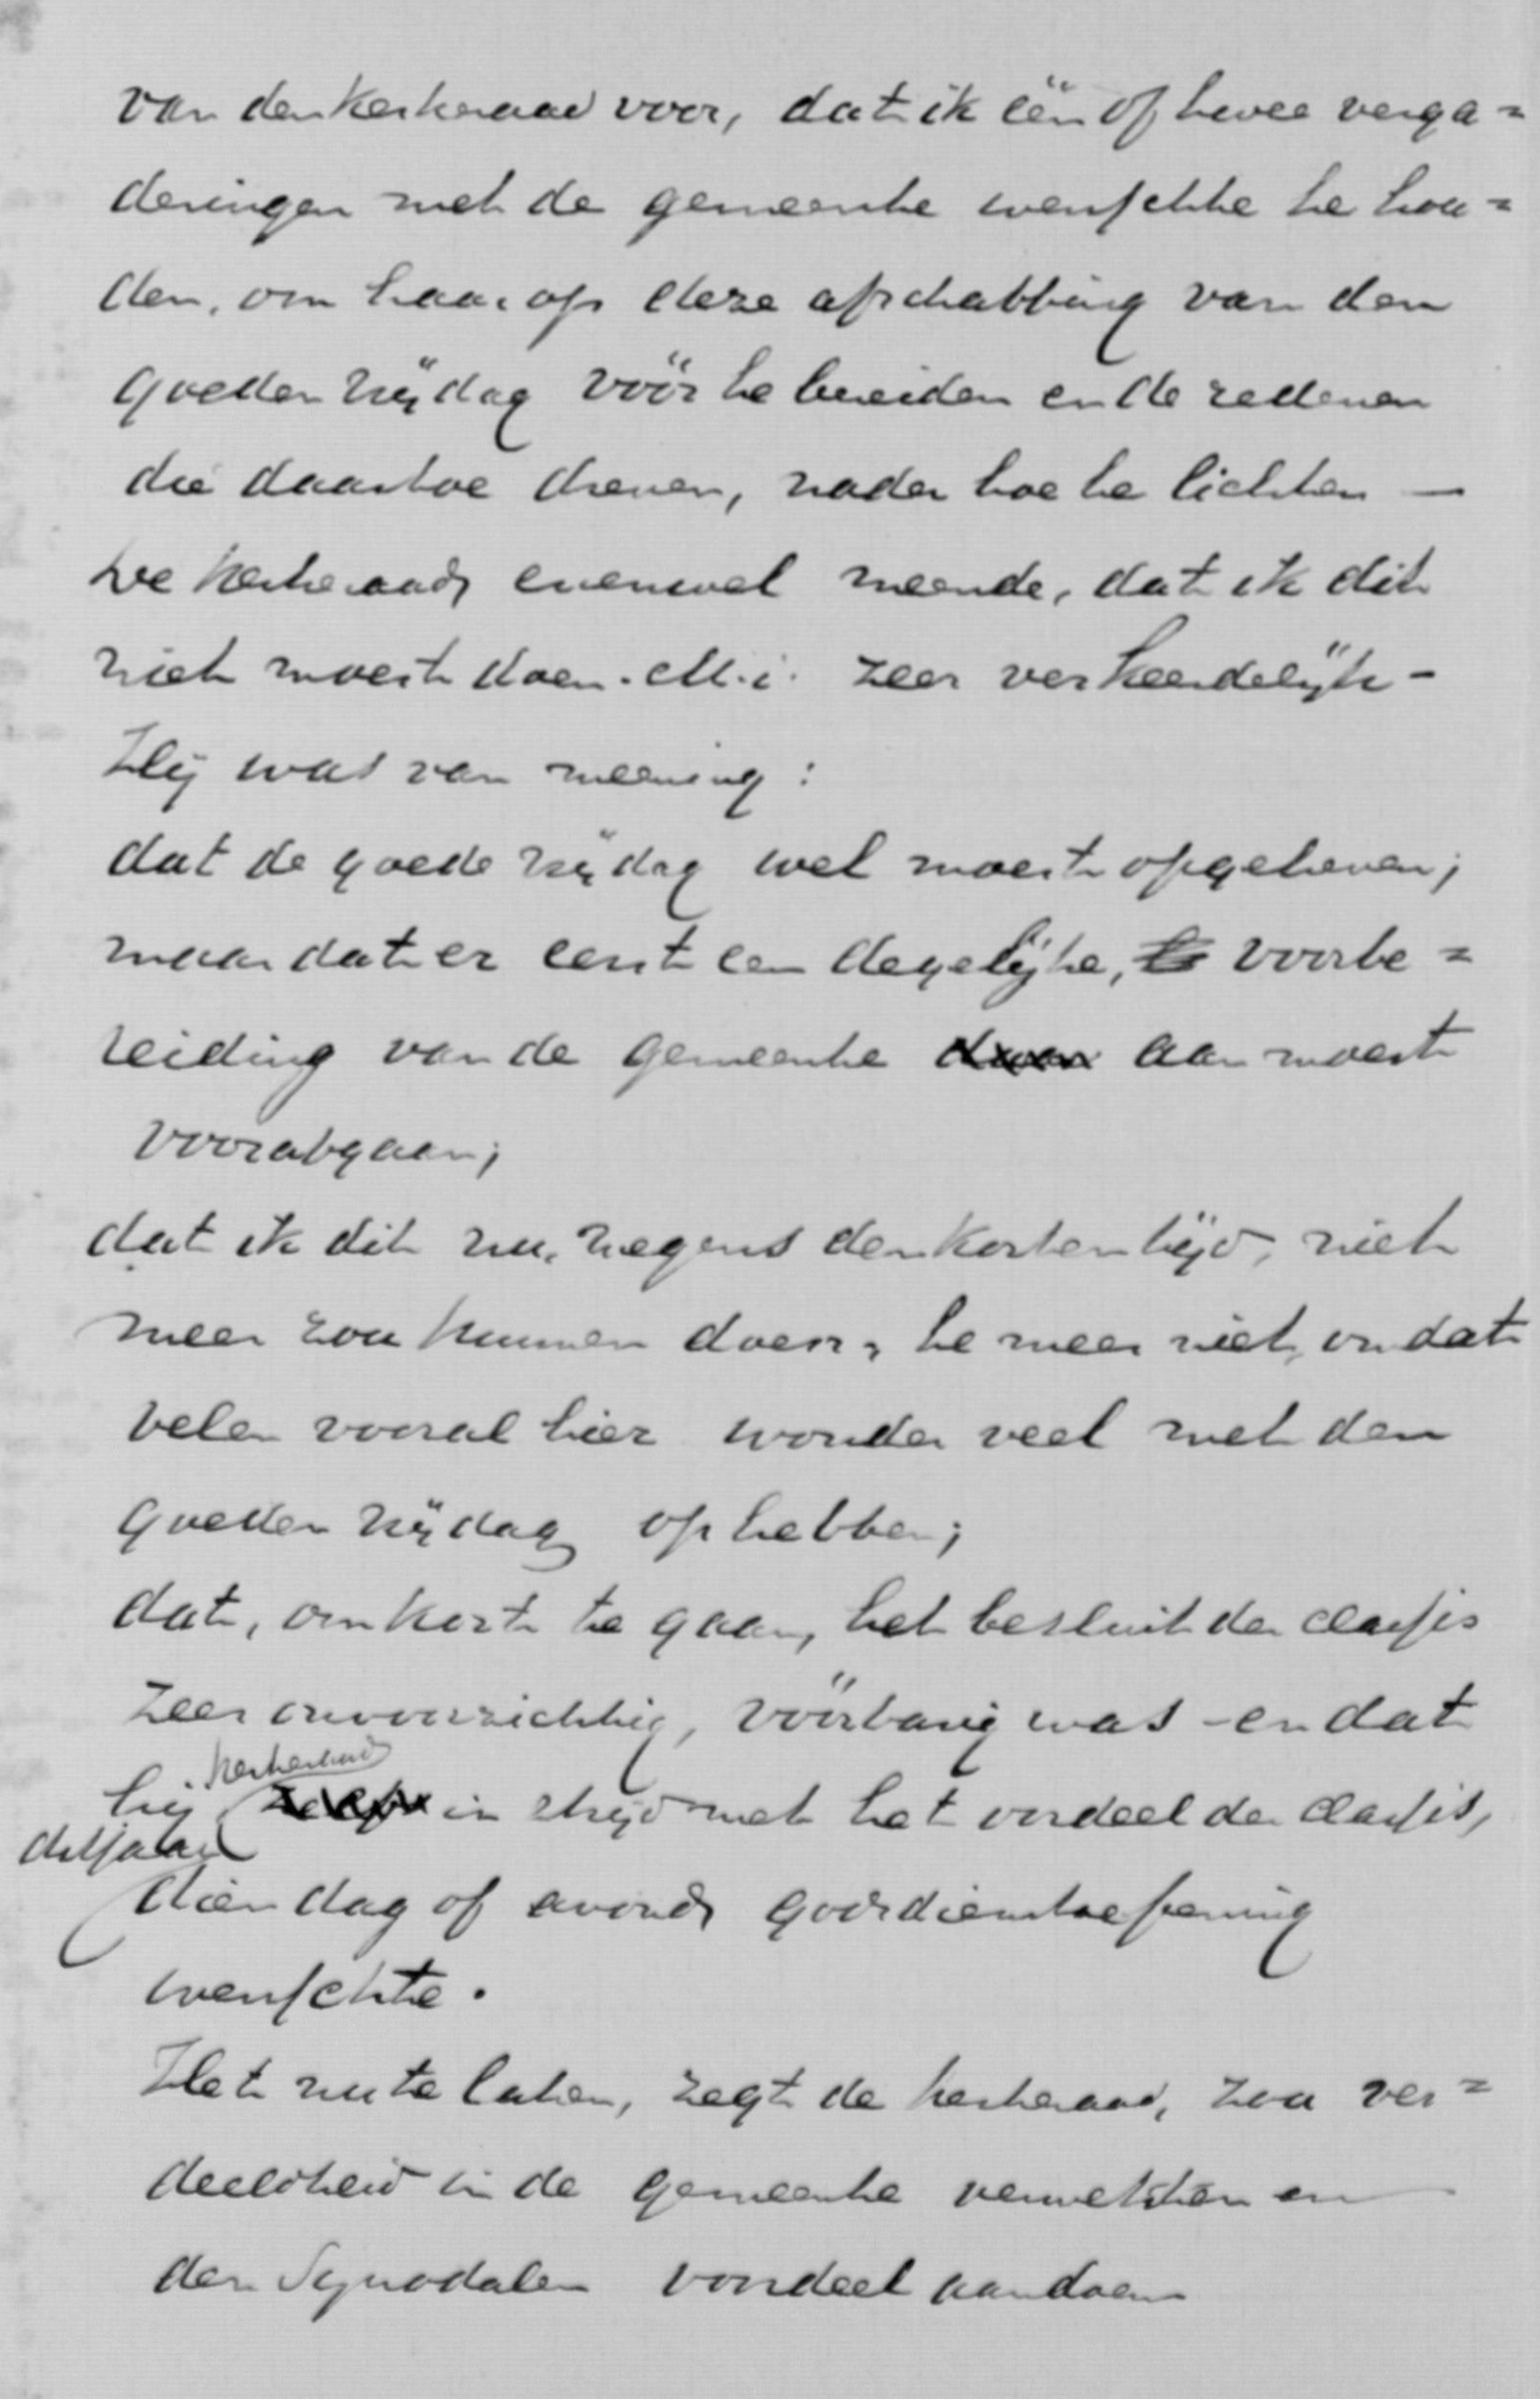 van den kerkeraad voor, dat ik één of twee verga=
deringen met de gemeente wenschte te hou=
den, om haar op deze afschaffing van den
goeden vrijdag vóór te bereiden en de redenen
die daartoe dreven, nader toe te lichten —
De kerkeraad evenwel meende, dat ik dit
niet moest doen. M.i. zeer verkeerdelijk -
Hij was van meening:
dat de goede vrijdag wel moest opgeheven;
maar dat er eerst een degelijke, voorbe=
reiding van de gemeente aan moest
voorafgaan;
dat ik dit nu, wegens den korten tijd, niet
meer zou kunnen doen, te meer niet, omdat
velen vooral hier wonder veel met den
goeden vrijdag op hebben;
dat, om kort te gaan, het besluit der classis
zeer onvoorzichtig, voorbarig was - en dat
kerkeraad
hij in strijd met het oordeel der classis,
dit jaar
dien dag of avond godsdienstoefening
wenschte.
Het nu te laten, zegt de kerkeraad, zou ver=
deeldheid in de gemeente verwekken en
den Synodalen voordeel aandoen